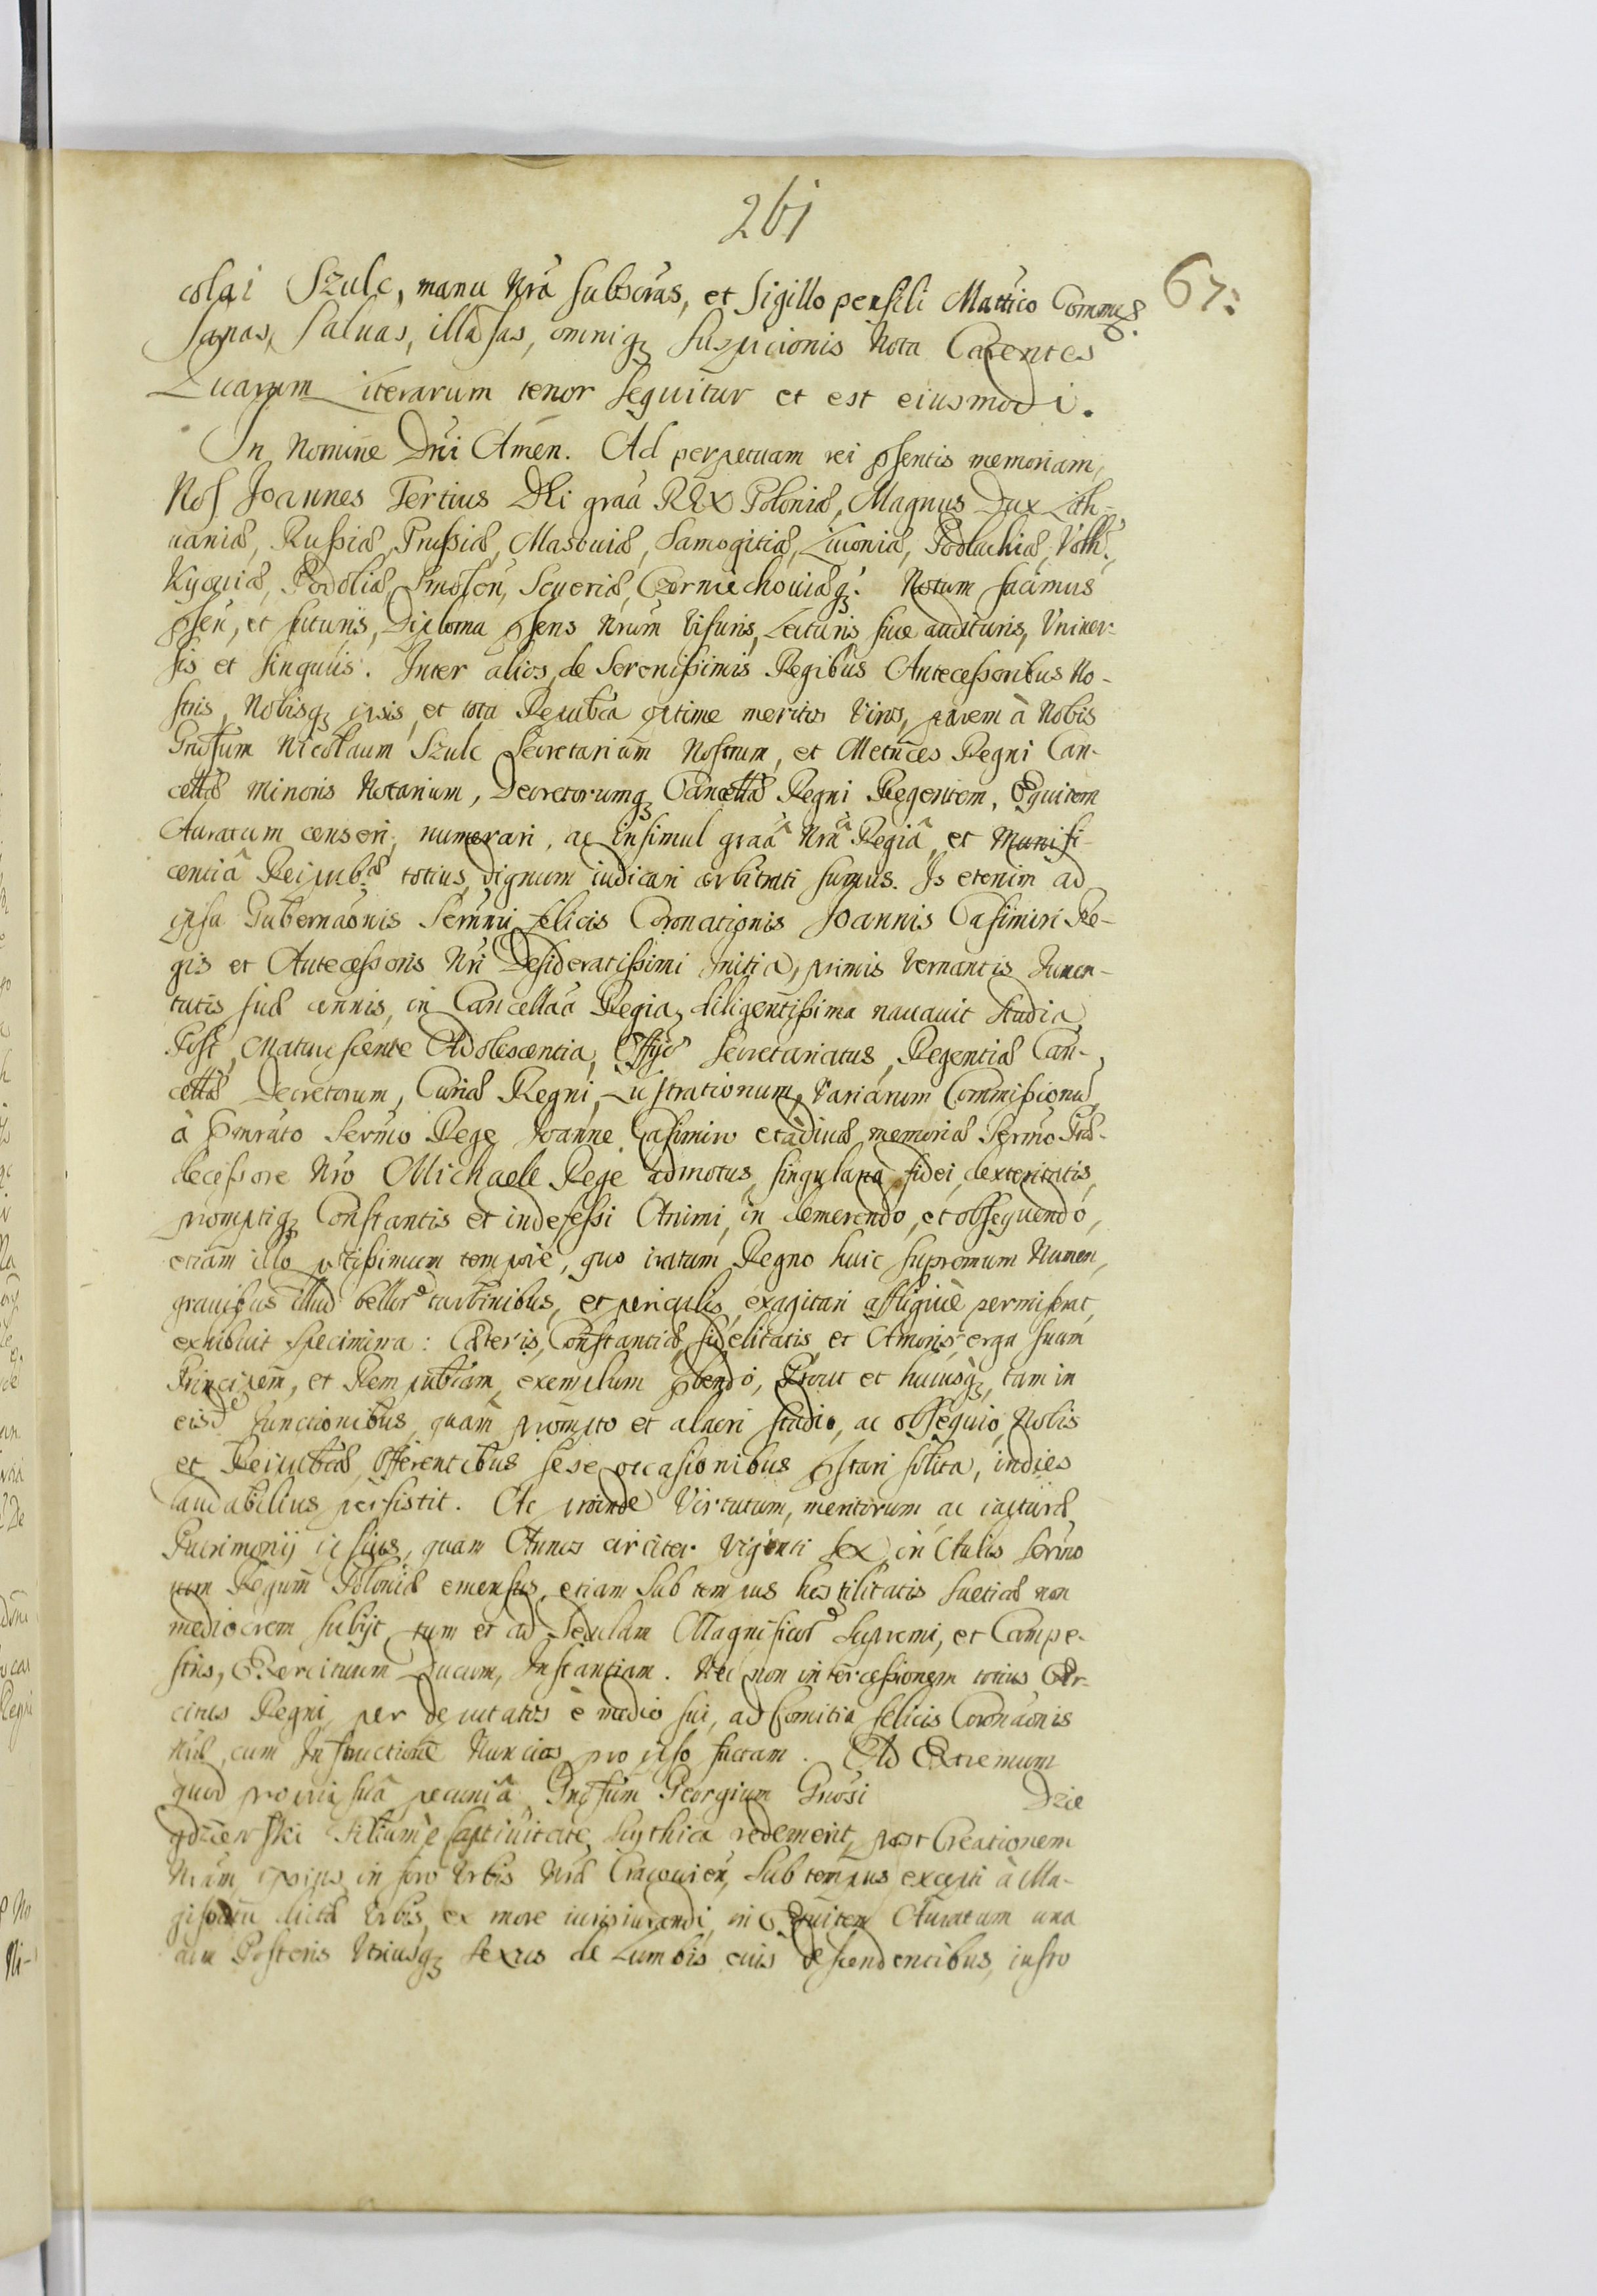 261
67:
colai Szulc, manu Nrâ subscras, et Sigillo pensili Mattico Commͦ.
sanas, Saluas, illæsas, omniq₃ Suspicionis Nota Carentes
Quarum Literarum tenor sequitur et est eiusmodi.
In Nomine Dni Amen. Ad perpetuam rei pсentis memoriam,
Nos Joannes Tertius Dei graa REX Poloniæ, Magnus Dux Lith-
uaniæ, Russiæ, Prussiæ, Masouiæ, Samogitiæ, Liuoniæ, Podlachiæ, Volh.
Kyouiæ, Podoliæ, Smolen, Seueriæ, Czerniechouiæq₃. Notum facimus
psen, et futuris, Diploma psens Nrum visuris, Lecturis siue audituris, Vniuer-
sis et singulis. Inter alios, de Serenissimis Regibus Antecessoribus No-
stris, Nobisq₃ ipsis, et tota Repubca optime meritos Viros, parem à Nobis
Gnosum Nicolaum Szulc Secretarium Nostrum, et Metrices Regni Can-
cellæ Minoris Notarium, Decretorumq₃ Cancellæ Regni Regentem, Equitem
Auratum censeri, numerari, ac insimul graâ Nrâ Regiâ, et Munifi-
centiâ Reipubcæ totius, dignum iudicari arbitrati sumus. Is etenim ad
ipsa Gubernaonis Sermi, felicis Coronationis Joannis Casimiri Re-
gis et Antecessoris Nri Desideratissimi Initia, primis Vernantis Juuen-
tutis suæ annis, in Cancellaa Regia, diligentissima nauauit studia,
Post, Maturescente Adolescentia, Offijs Secretariatus, Regentiæ Can-
cellæ Decretorum, Curiæ Regni, Lustrationum, Variarum Commissionu,
à pmrato Sermo Rege Joanne Casimiro et à diuæ memoriæ Sermo Præ-
decessore Nro Michaele Rege admotus, singularia fidei, dexteritatis,
promptiq₃ Constantis et indefessi Animi, in demerendo, et obsequendo,
etiam illo potissimum tempore, quo iratum Regno huic supremum Numen,
grauibus illud bellor turbinibus, et periculis, exagitari affligiq₃ permiserat,
exhibuit specimina: Cæteris, Constantiæ, fidelitatis, et Amoris, erga suam
Principem, et Rempubcam, exemplum pbendo, Prout et hucusq₃, tam in
eisd functionibus, quam prompto et alacri studio, ac obsequio, Nobis
et Reipubcæ, Offerentibus sese occasionibus pstari solita, indies
laudabilius persistit. Ac proinde Virtutum, meritorum, ac iacturæ
Patrimonij ipsius, quam Annos circiter Viginti sex, in Aulis Sermo
rum Regum Poloniæ emensus, etiam sub tempus hostilitatis Sueticæ non
mediocrem subijt, tum et ad sedulam Magnificor Supremi, et Campe-
stris, Exercituum Ducum, Instantiam. Nec non intercessionem totius Exer-
citus Regni, per deputatos è medio sui, ad Comitia felicis Coronaonis
Nræ, cum Instructione Nuncios pro ipso factam. Ad Extremum
quod propria suâ pecuniâ Gnosum Georgium Gnosi Dzie
gdzierski Filium è Captiuitate Scythica redemerit, post Creationem
Nram, ipsius in foro Vrbis Nræ Cracouien, Sub tempus excepti à Ma-
gistratu dictæ Vrbis, ex more iurisiurandi, in Equitem Auratum una
cum Posteris Vtriusq₃ sexus de Lumbis eius descendentibus, iusto